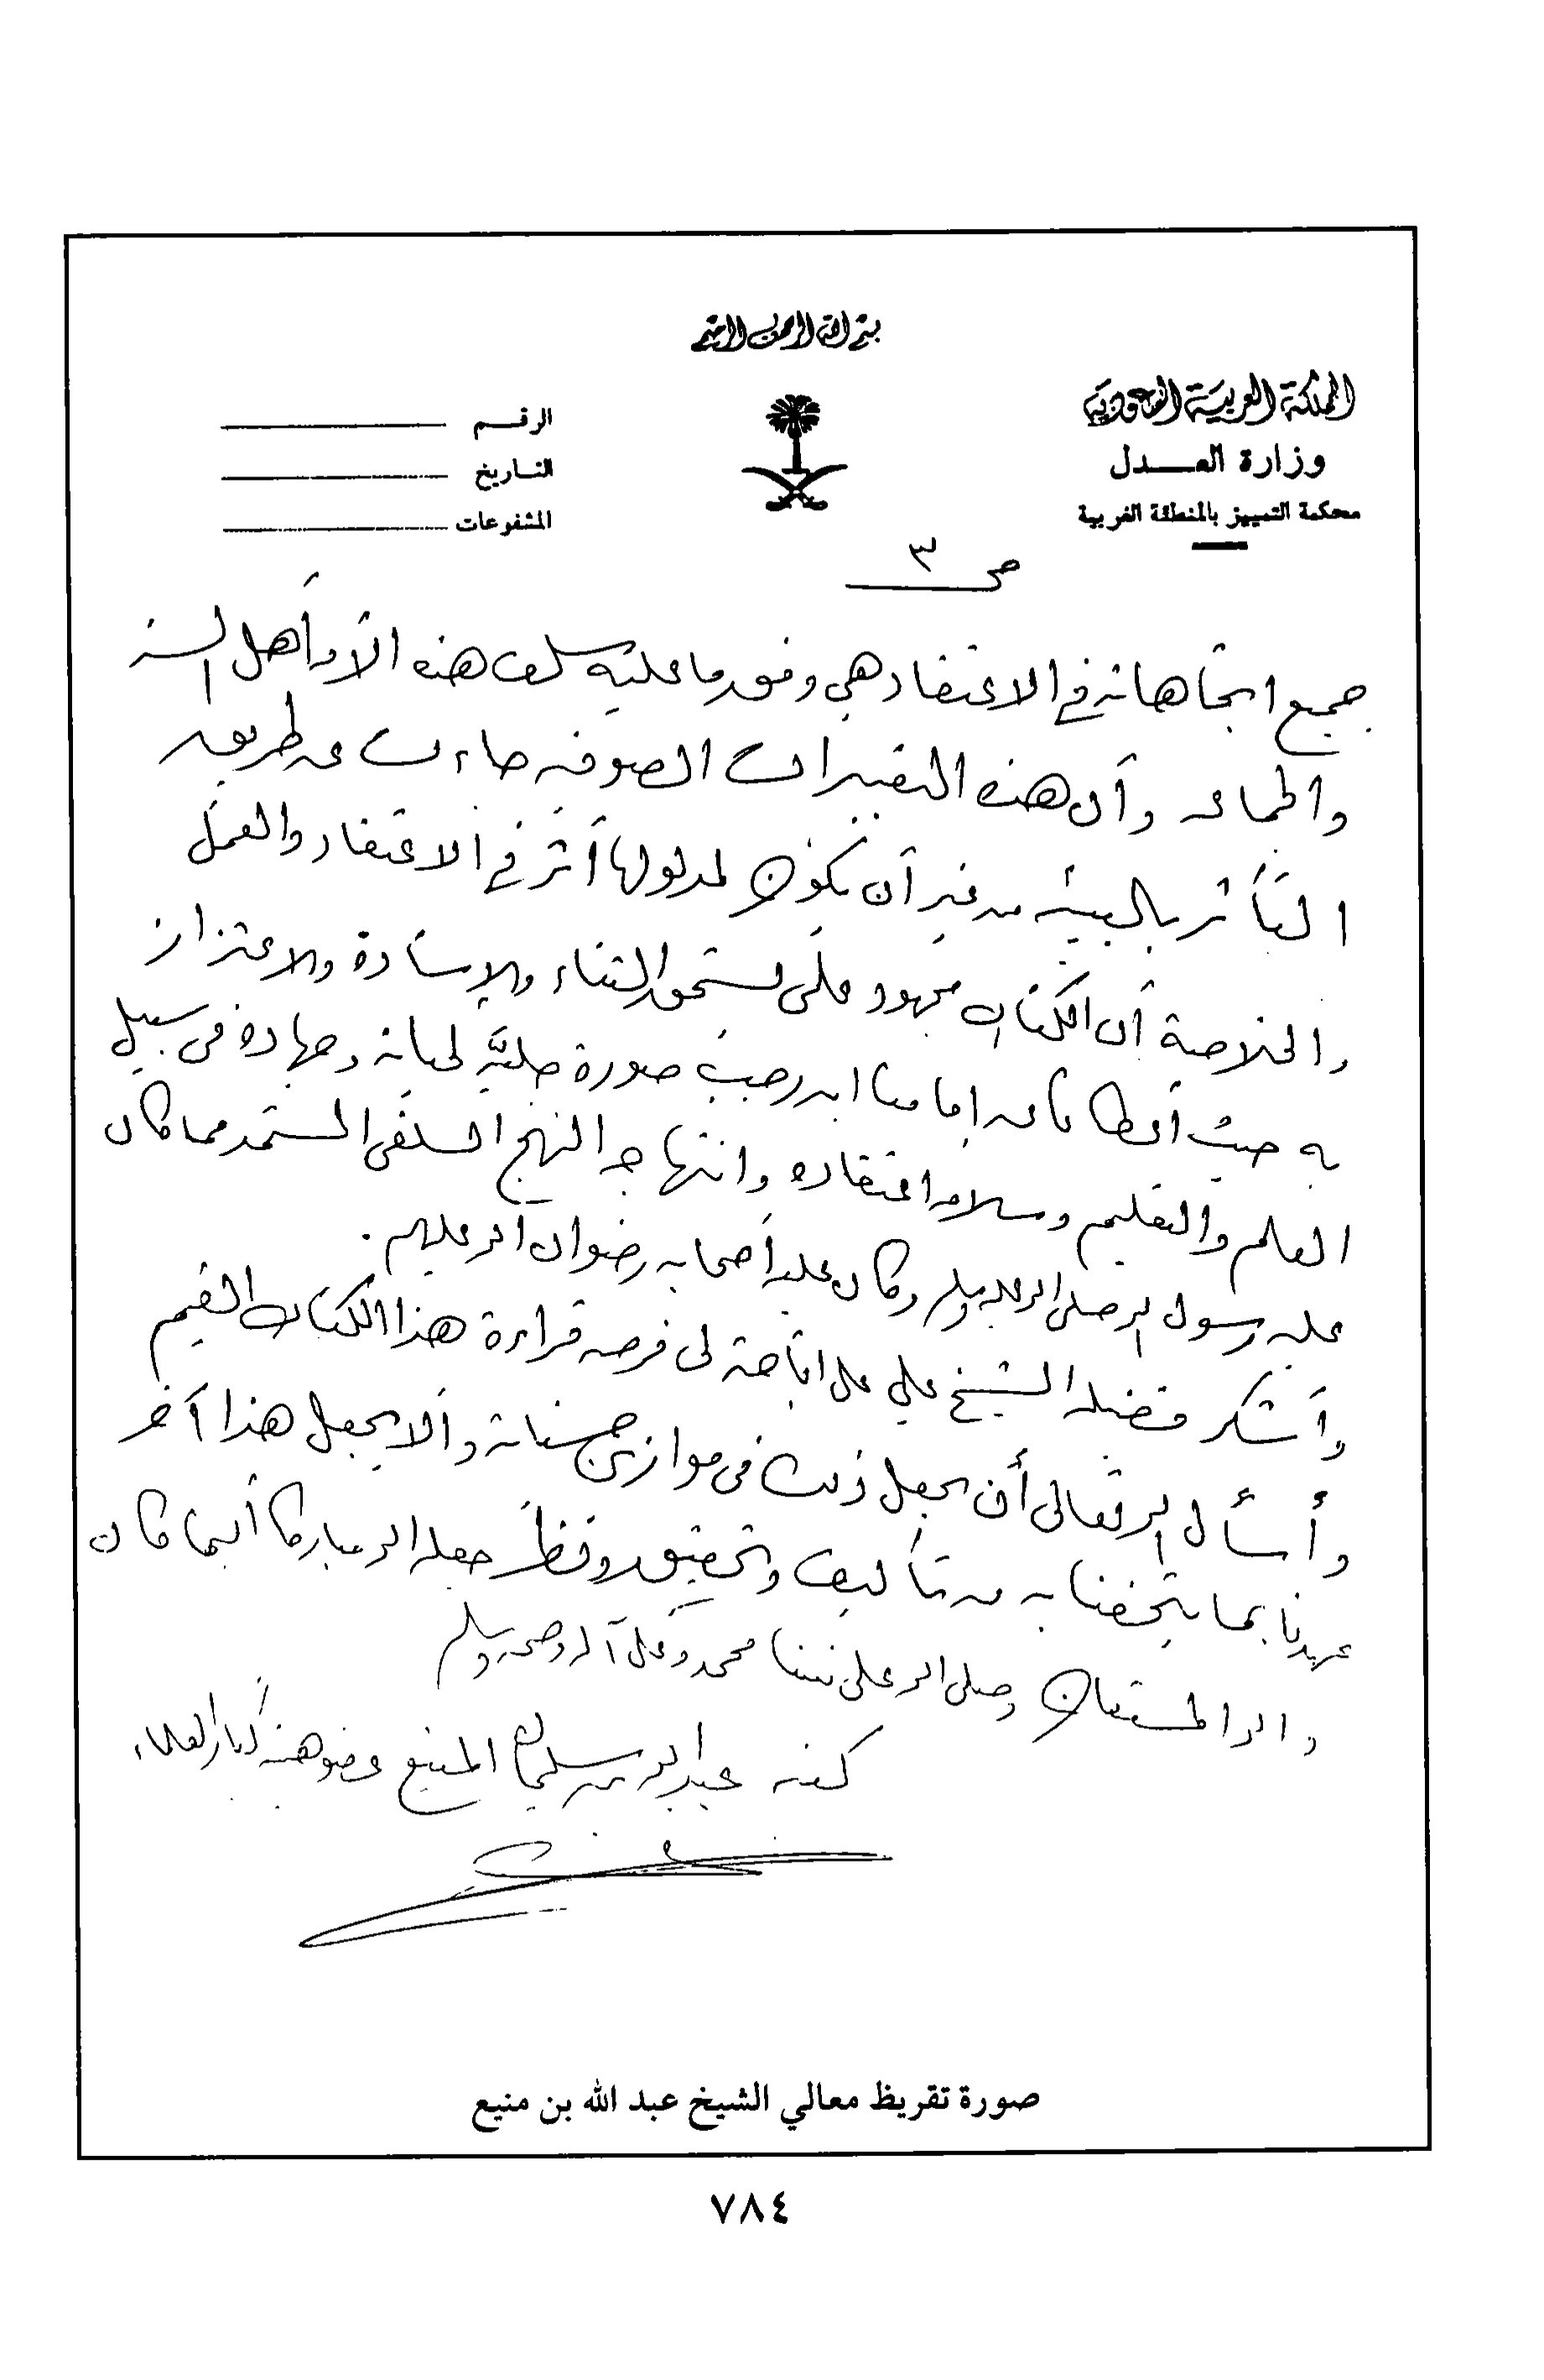 بسم الله الرحمن الرحيم
المملكة العربية السعودية
وزارة العدل
محكمة التمييز بالمنطقة الغربية
الرقم
التاريخ
المشفوعات
ص ٣
جميع اتجاهاته في الاعتقاد هي وفق ما عليه سلف هذه الأمة أهل السنة
والجماعة وأن هذه التعبيرات الصوفية جاءت عن طريق
التأثر بالبيئة من غير أن يكون لمدلولها أثر في الاعتقاد والعمل
والخلاصة أن الكتاب مجهود علمي يستحق الثناء والإشادة والاعتزاز
به حيث أعطانا عن إمامنا ابن رجب صورة جلية لحياته وجهاده في سبيل
العلم والتعليم وسلامة اعتقاده وانتهاجه النهج السلفي المستمد مما كان
عليه رسول الله صلى الله عليه وسلم وكان عليه أصحابه رضوان الله عليهم.
وأشكر فضيلة الشيخ علي على اتاحته لي فرصة قراءة هذا الكتاب القيم
وأسأل الله تعالى أن يجعل ذلك في موازين حسناته وألا يجعل هذا آخر
عهدنا بما يتحفنا به من تأليف وتحقيق ونظر جعله الله مباركا أينما كان
والله المستعان وصلى الله على نبينا محمد وعلى آله وصحبه وسلم
كتبه عبد الله بن سليمان المنيع عضو هيئة كبار العلماء
صورة تقريظ معالي الشيخ عبد الله بن منيع
٧٨٤